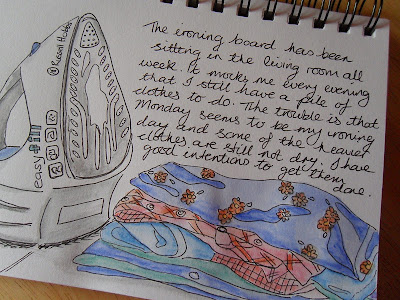 The ironing board has been
sitting in the living room all
week. It mocks me every evening
that I still have a pile of
clothes to do. The trouble is that
Monday seems to be my ironing
day and some of the heavier
clothes are still not dry. I have
good intentions to get them
done.
easy